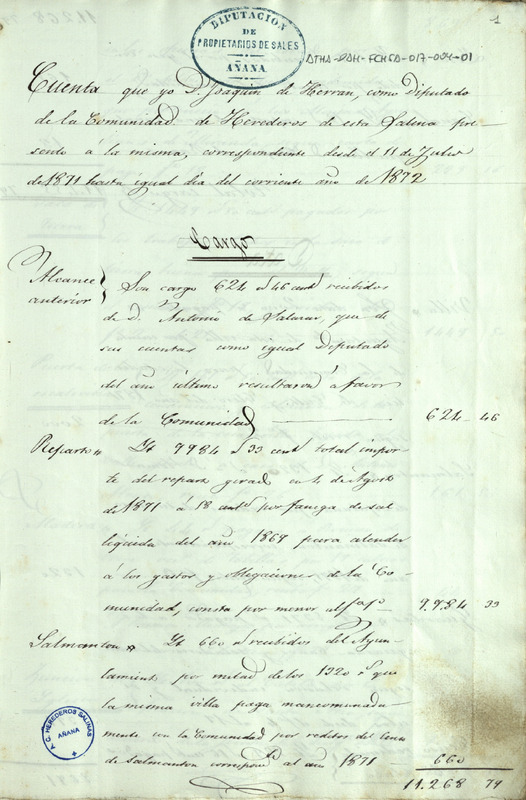 1
DIPUTACION
DE
PROPIETARIOS DE SALES
AÑANA
ATHA-DAH-FCHSA-017-004-01
Cuenta que yo D. Joaquin de Herran, como Diputado
de la Comunidad de Herederos de esta Salina pre-
sento á la misma, correspondiente desde el 11 de Julio
de 1871 hasta igual dia del corriente año de 1872
Cargo
Alcance
anterior
Son cargo 624 rs 46 cents recibidos
de D. Antonio de Salazar, que de
sus cuentas como igual Diputado
del año último resultaron á favor
de la Comunidad 624 46
Reparto
It 9984 rs 33 cents total impor-
te del reparto girado en 4 de Agosto
de 1871 á 18 cents por fanega de sal
liquida del año 1869 para atender
á los gastos y obligaciones de la Co-
munidad, consta por menor al 9.984 33
Salmanton
It 660 rs recibidos del Ayun-
tamiento por metad de los 1320 rs que
la misma villa paga mancomunada
mente con la Comunidad por reditos del Censo
de Salmanton correspte al año 1871 660
11.268 79
A. C. HEREDEROS SALINAS
AÑANA